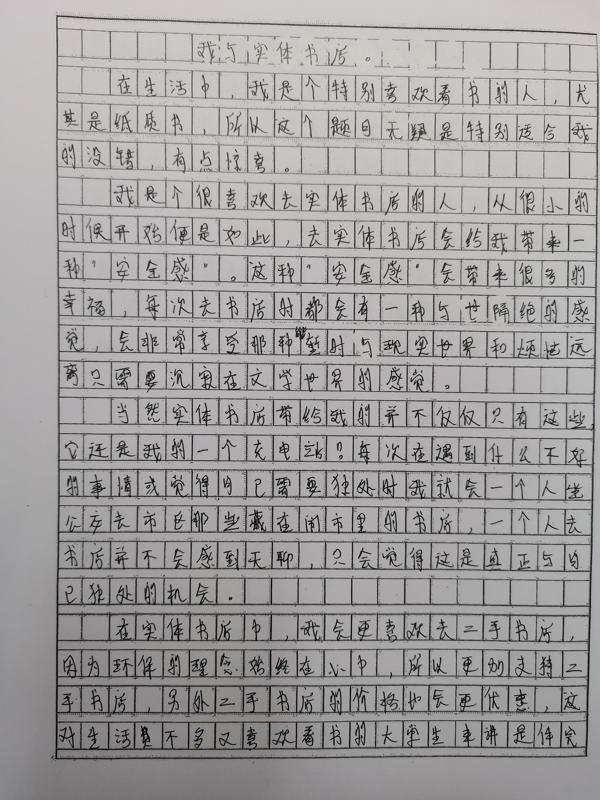 我与实体书店。
在生活中，我是个特别喜欢看书的人，尤
其是纸质书，所以这个题目无疑是特别适合我
的没错，有点惊喜。
我是个很喜欢去实体书店的人，从很小的
时候开始便是如此，去实体书店会给我带来一
种"安全感"。这种"安全感"会带来很多的
幸福，每次去书店时都会有一种与世隔绝的感
觉，会非常享受那种暂时与现实世界和烦恼远
离只需要沉寂在文学世界的感觉。
当然实体书店带给我的并不仅仅只有这些，
它还是我的一个充电站？每次在遇到什么不好
的事情或觉得自己需要独处时我就会一个人坐
公交去市区那些藏在闹市里的书店，一个人去
书店并不会感到无聊，只会觉得这是真正与自
己独处的机会。
在实体书店中，我会更喜欢去二手书店，
因为环保的理念始终在心中，所以更加支持二
手书店，另外二手书店的价格也会更优惠，这
对生活费不多又喜欢看书的大学生来讲是件完